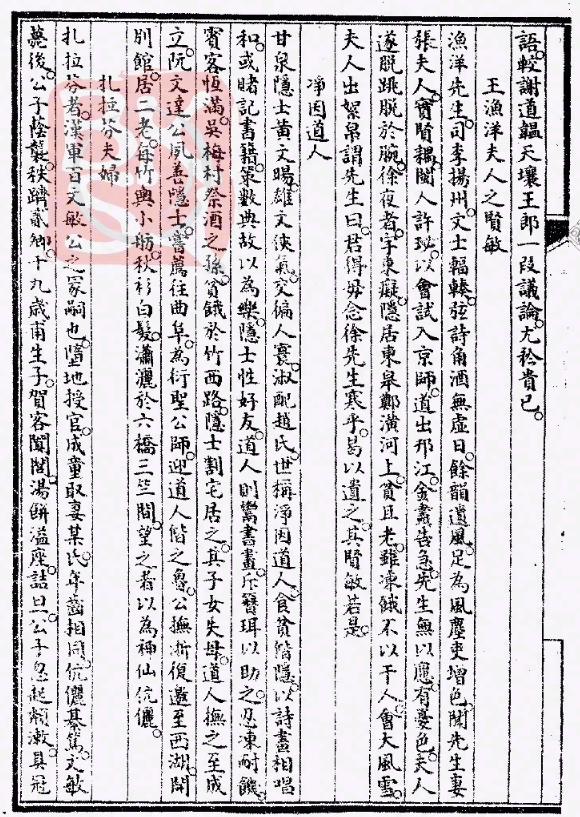 語較謝道韞天壤王郎一段議論尤矜貴已
王漁洋夫人之賢敏
漁洋先生司李揚州文士輻輳弦詩角酒無虛日餘韻遺風足為風塵吏增色聞先生妻
張夫人實賢耦閩人許珌以會試入京師道出邗江金盡告急先生無以應有憂色夫人
遂脫跳脫於腕徐夜者字東癡隱居東皋鄭潢河上貧且老雖凍餓不以干人會大風雪
夫人出絮帛謂先生曰君得毋念徐先生寒乎曷以遺之其賢敏若是
淨因道人
甘泉隱士黃文暘雄文俠氣交徧人寰淑配趙氏世稱淨因道人食貧偕隱以詩畫相唱
和或睹記書籍策數典故以為樂隱士性好友道人則鬻書畫斥簪珥以助之忍凍耐饑
賓客恆滿吳梅村祭酒之孫貧餓於竹西路隱士割宅居之其子女失母道人撫之至成
立阮文達公夙善隱士嘗薦往曲阜為衍聖公師迎道人偕之魯公撫浙復邀至西湖開
別館居二老每竹輿小舫秋衫白髮瀟灑於六橋三竺間望之者以為神仙伉儷
扎拉芬夫婦
扎拉芬者漢軍百文敏公之冢嗣也墮地授官成童取妻某氏年齒相同伉儷綦篤文敏
薨後公子蔭襲秩躋貳卿十九歲甫生子賀客闐閣湯餅溢座詰旦公子忽起頮漱具冠